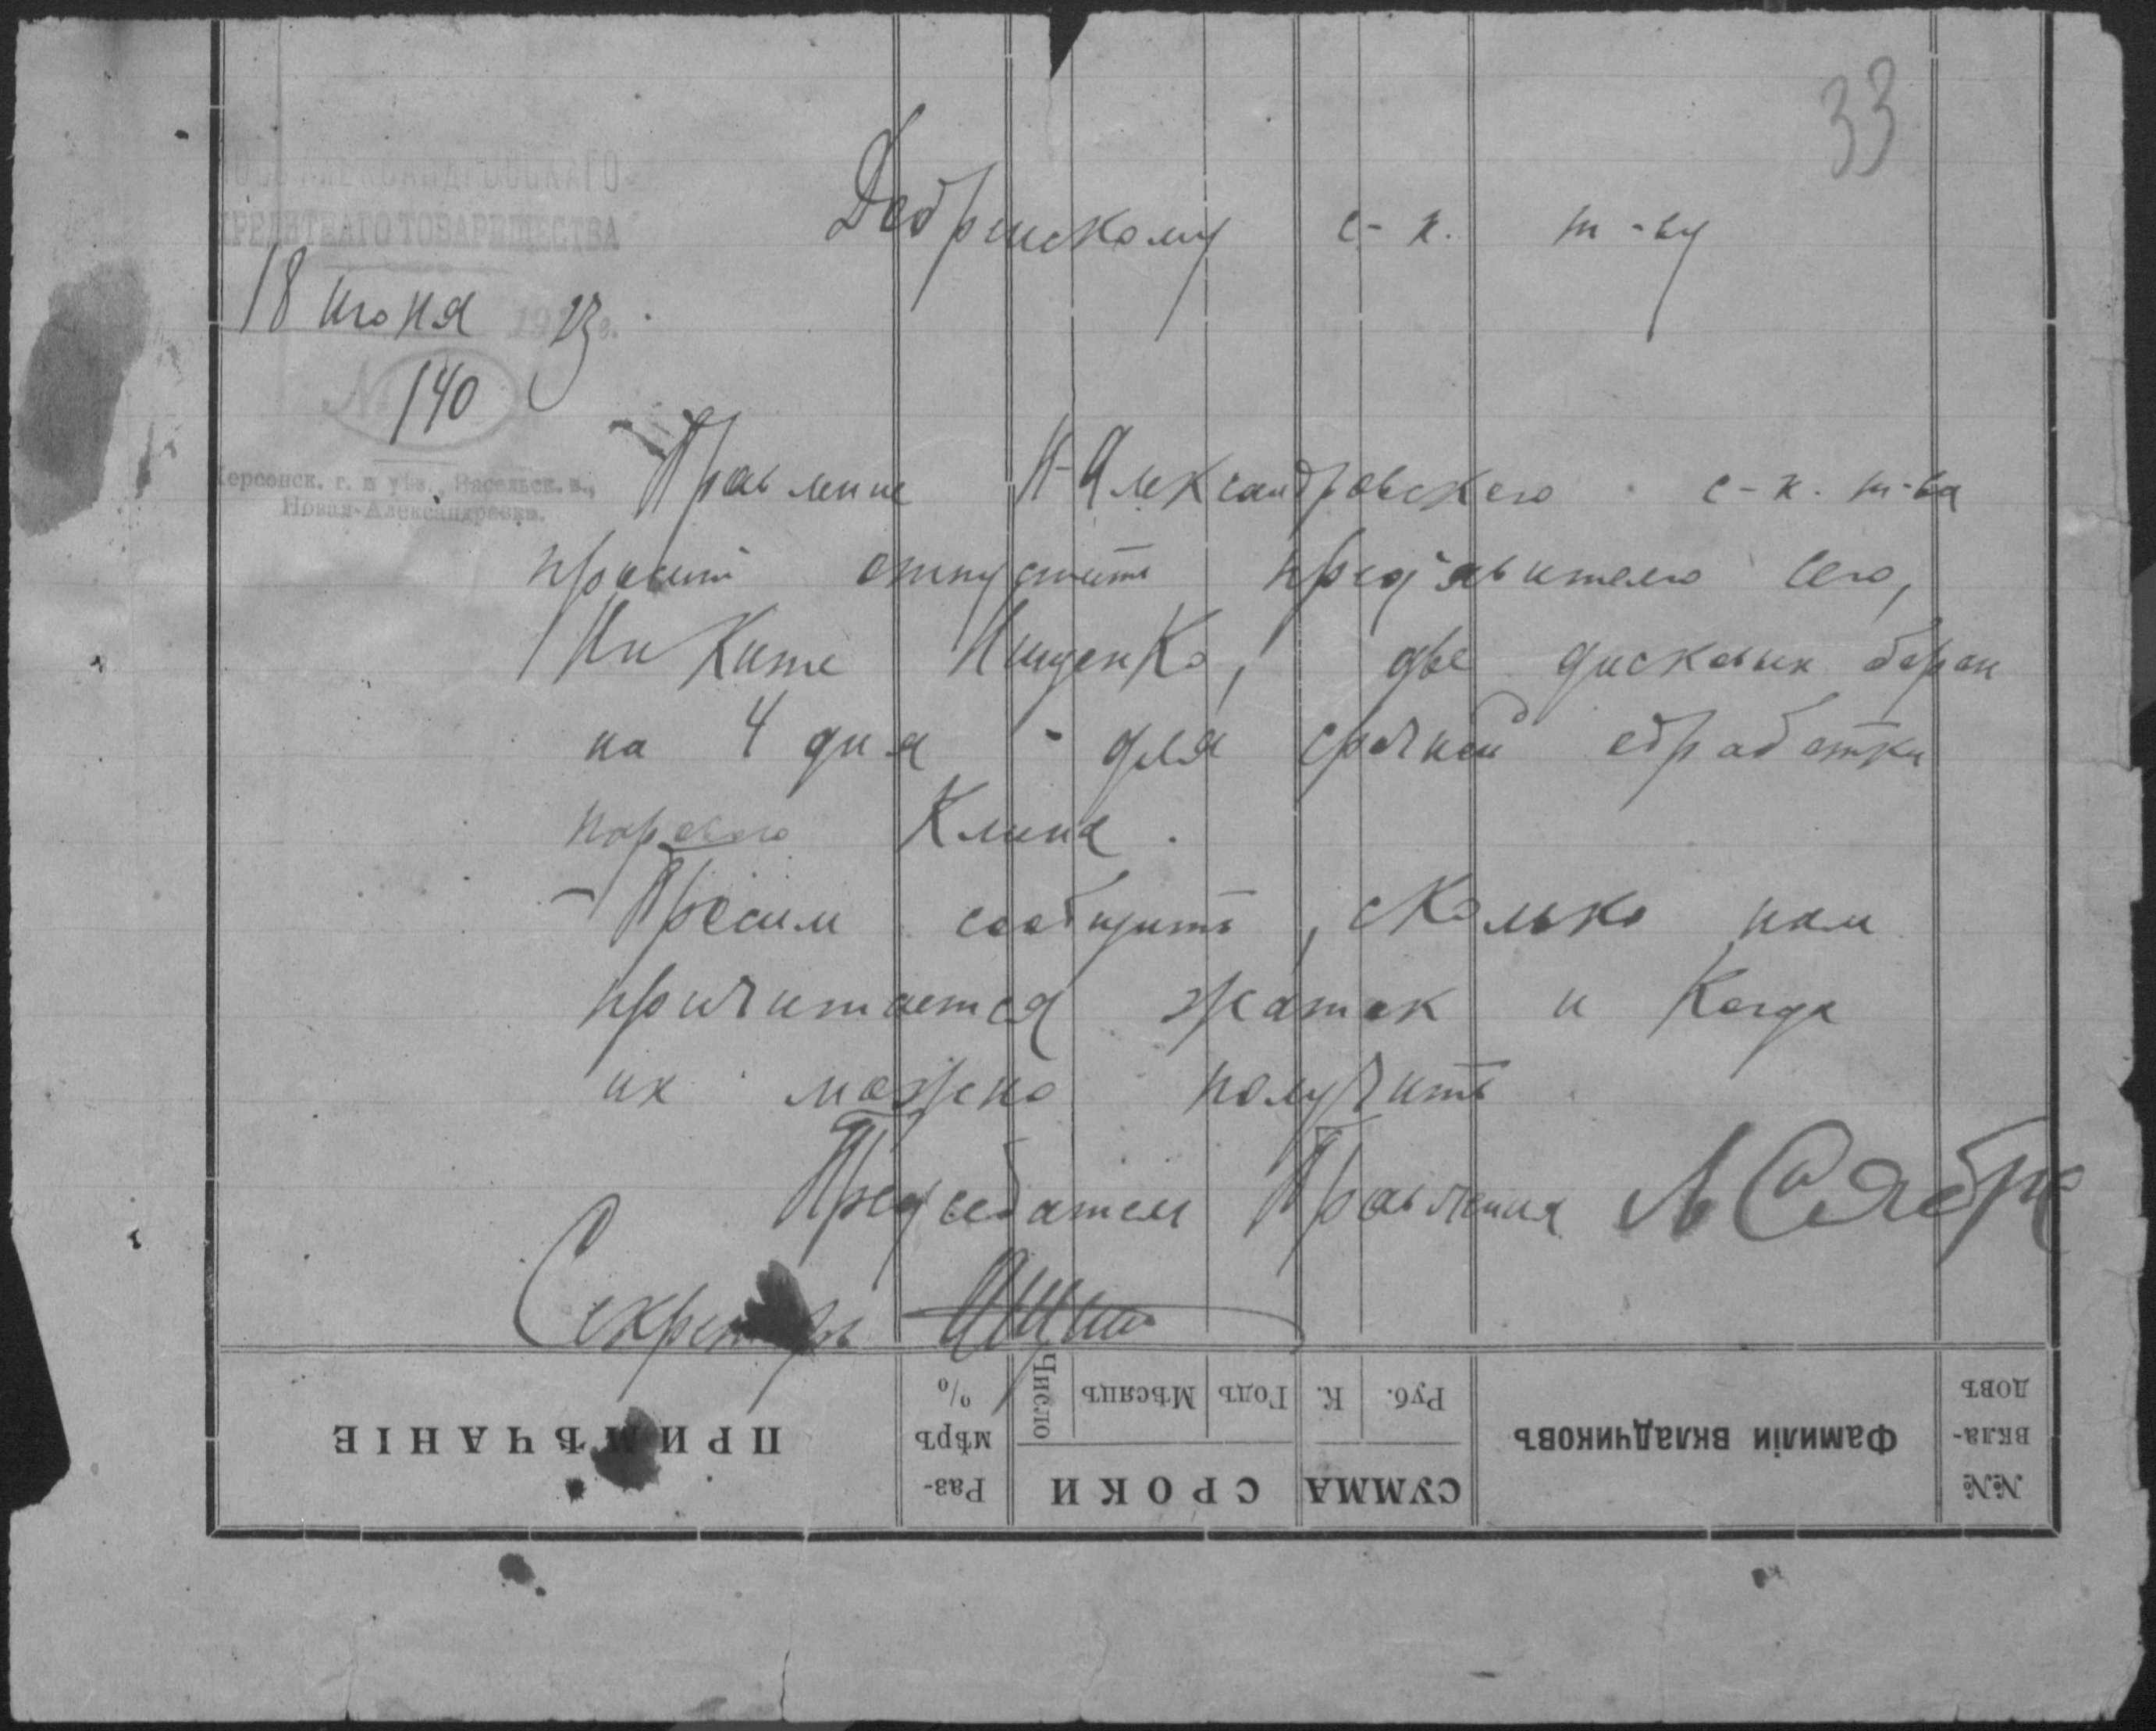 33
НОВО-АЛЕКСАНДРОВСКАГО
КРЕДИТНАГО ТОВАРИЩЕСТВА
Добринскому с-х. т-ву
18 июня 1923 г.
№ 140
Херсонск. г. и уѣз., Засельск. в.,
Новая-Александровка.
Правление Н-Александровского с-х. т-ва
просит отпустить пред'явителю сего,
Никите Нищенко, две дисковых борон
на 4 дня - для срочной обработки
парового клина.
Просим сообщить, сколько нам
причитается жаток и когда
их можно получить
Председатель Правления
Секретарь
№№ вкладовъ
Фамиліи вкладчиковъ
СУММА
Руб. К.
СРОКИ
Годъ Мѣсяцъ Число
Размѣръ %
ПРИМѢЧАНІЕ